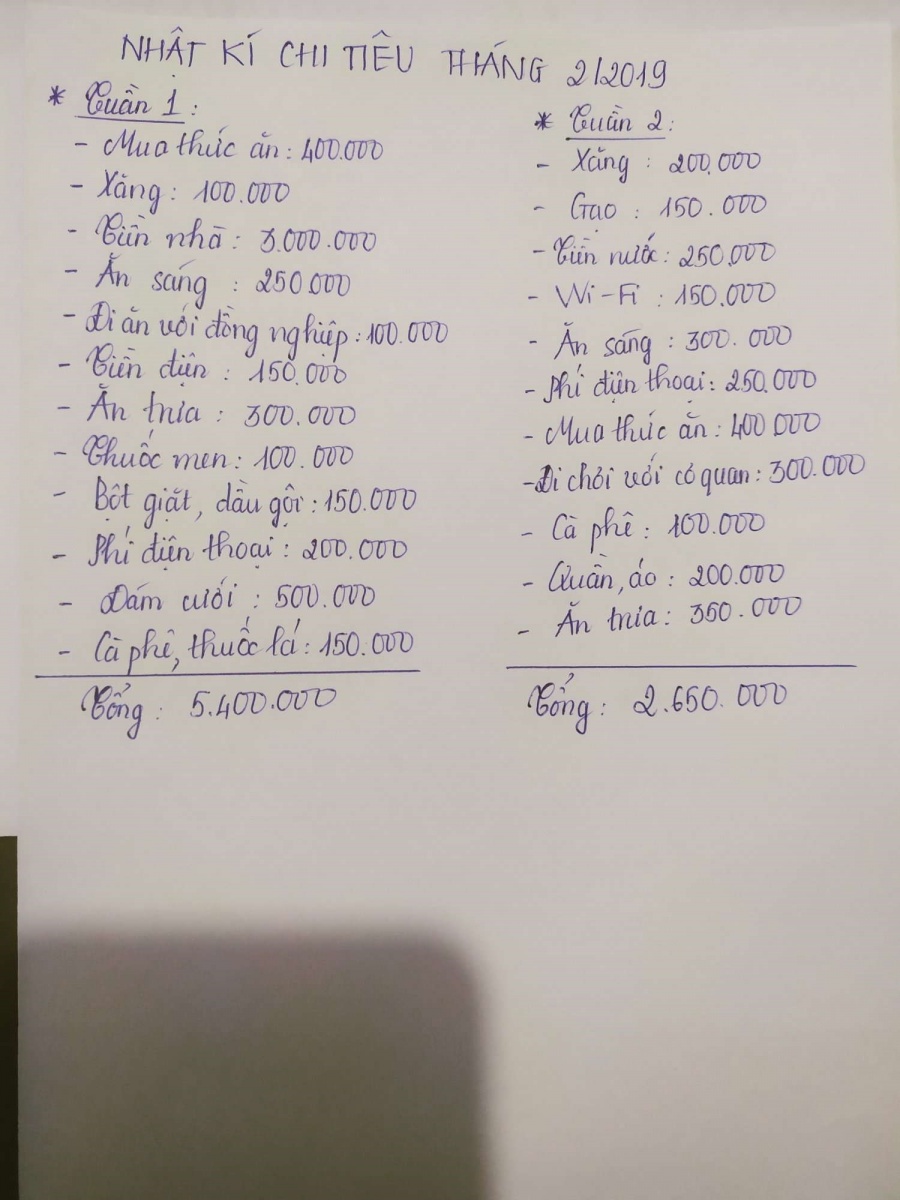 NHẬT KÍ CHI TIÊU THÁNG 2/2019
* Tuần 1 :
- Mua thức ăn : 400.000
- Xăng : 100.000
- Tiền nhà : 3.000.000
- Ăn sáng : 250.000
- Đi ăn với đồng nghiệp : 100.000
- Tiền điện : 150.000
- Ăn trưa : 300.000
- Thuốc men : 100.000
- Bột giặt, dầu gội : 150.000
- Phí điện thoại : 200.000
- Đám cưới : 500.000
- Cà phê, thuốc lá : 150.000
Tổng : 5.400.000
* Tuần 2 :
- Xăng : 200.000
- Gạo : 150.000
- Tiền nước : 250.000
- Wi-Fi : 150.000
- Ăn sáng : 300.000
- Phí điện thoại : 250.000
- Mua thức ăn : 400.000
- Đi chơi với cơ quan : 300.000
- Cà phê : 100.000
- Quần, áo : 200.000
- Ăn trưa : 350.000
Tổng : 2.650.000